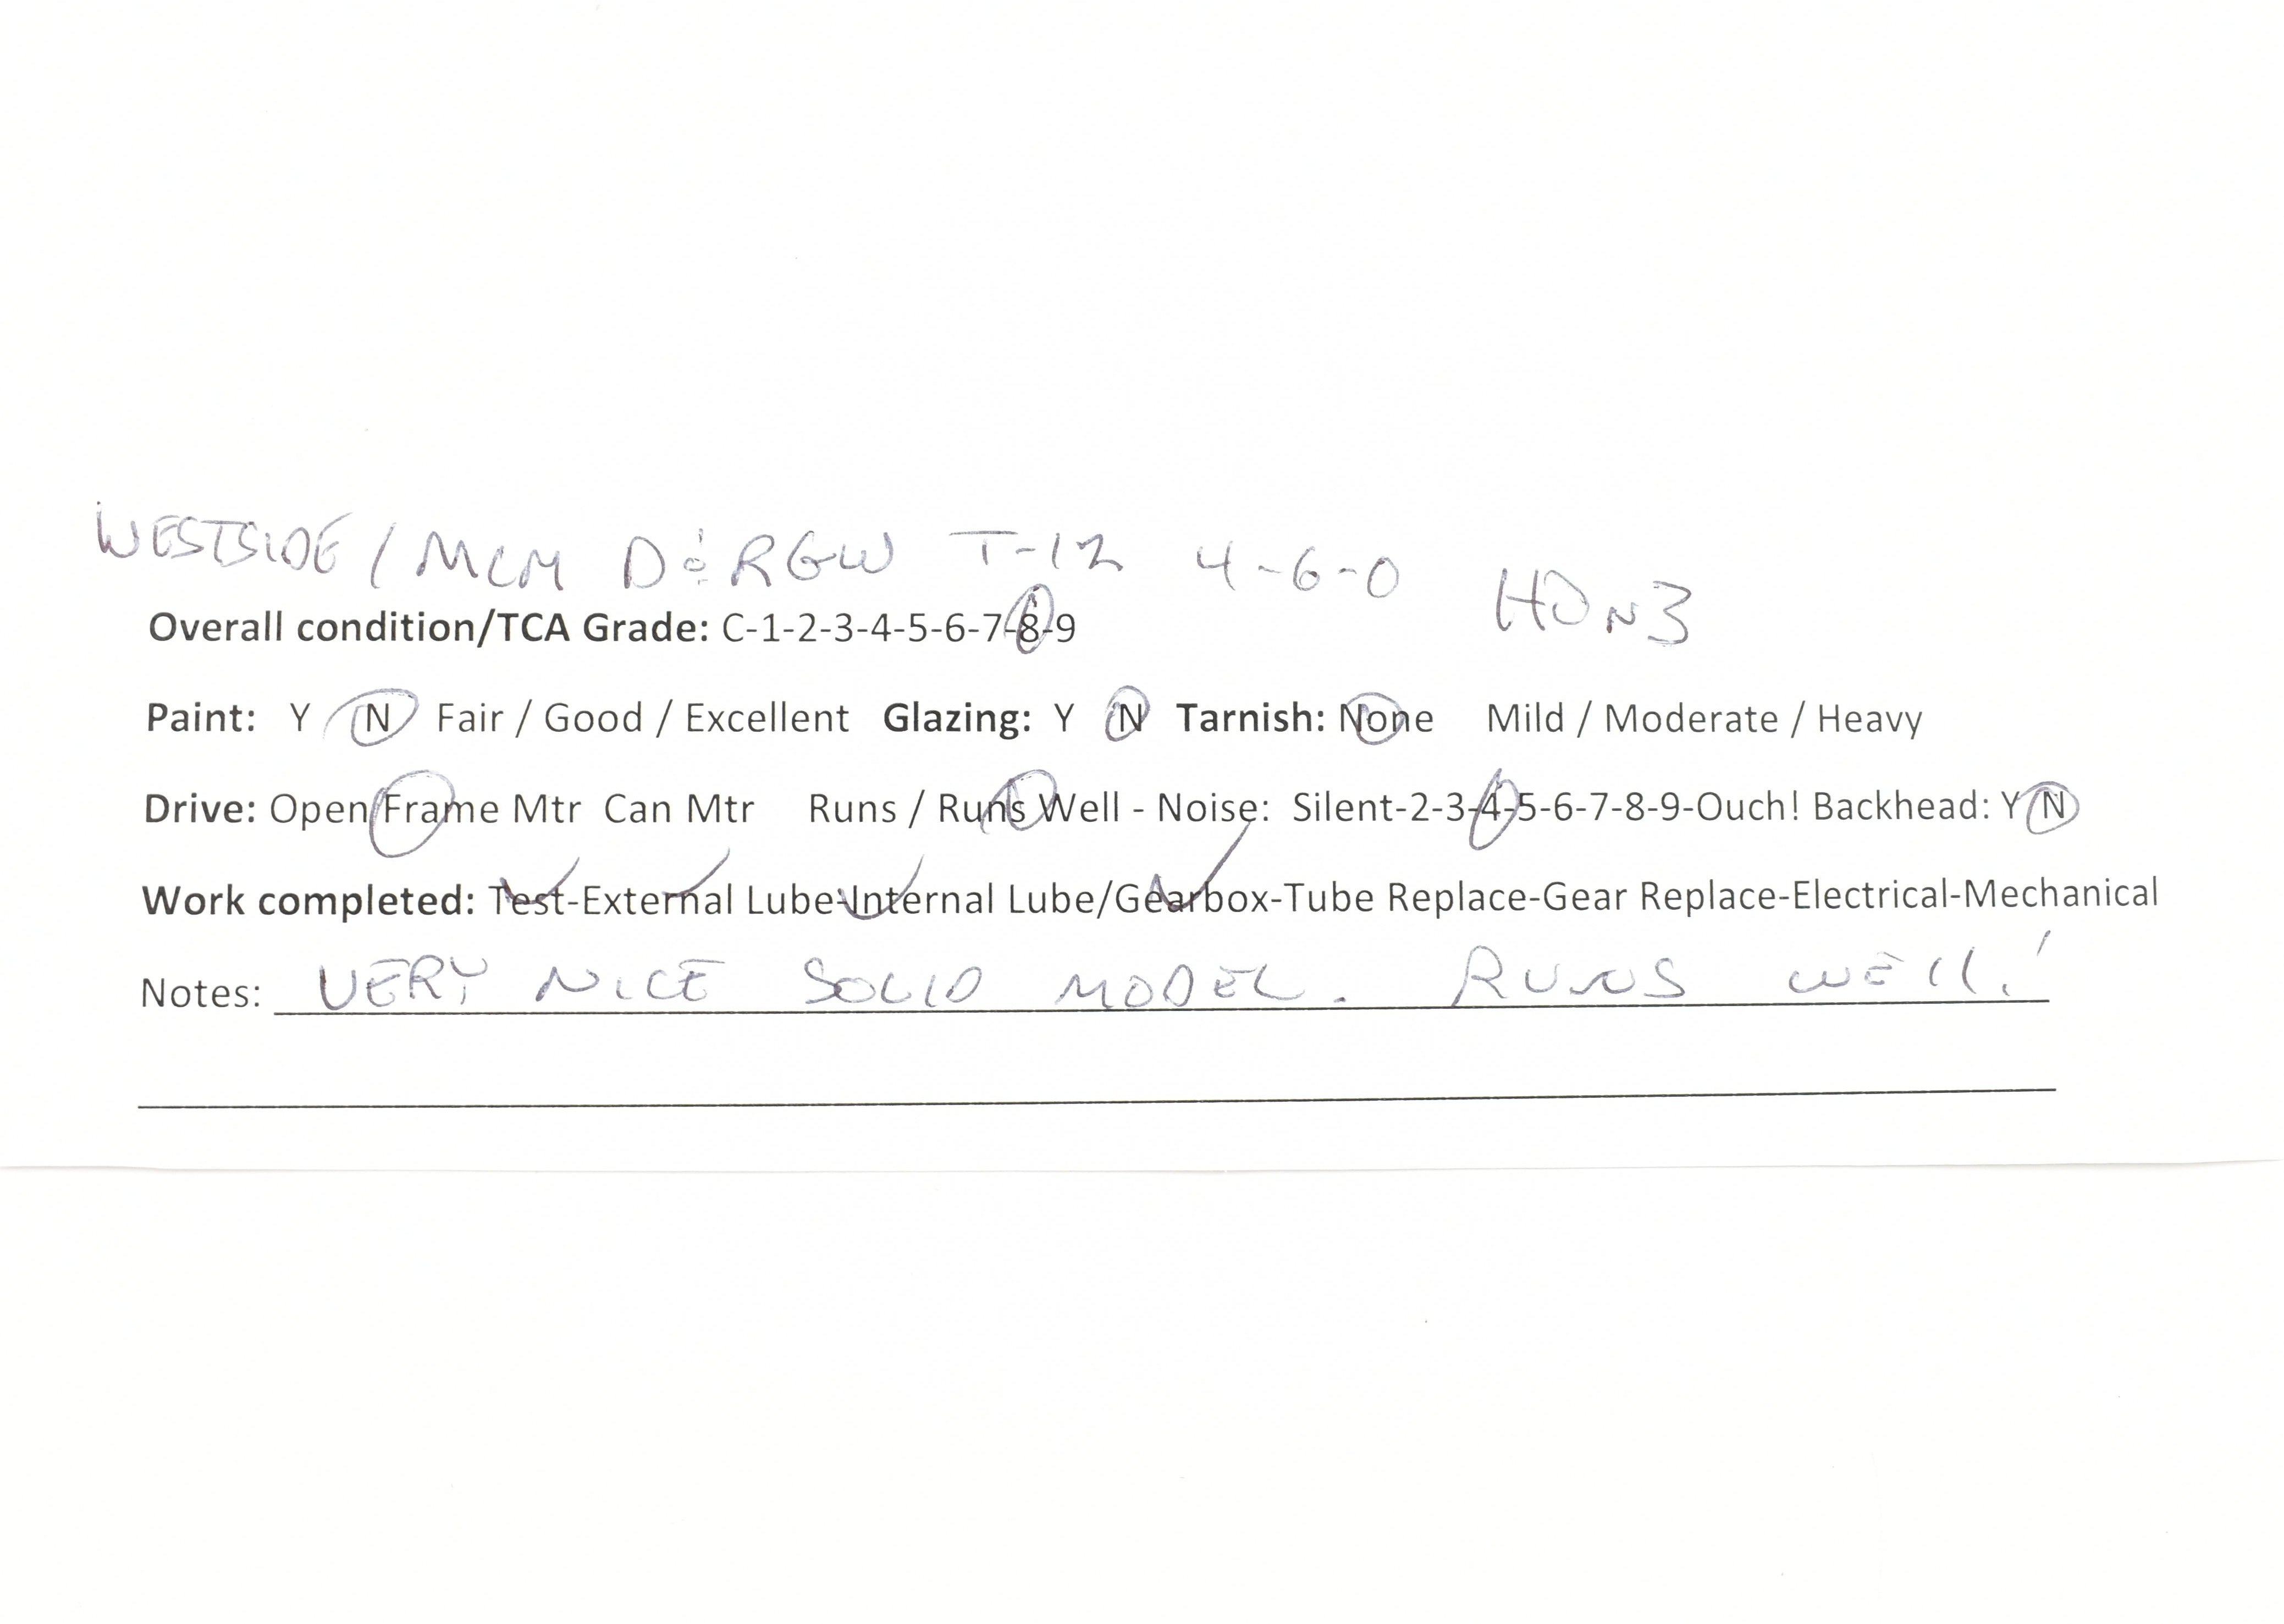 WESTSIDE / MCM D&RGW T-12 4-6-0 HOn3
Overall condition/TCA Grade: C-1-2-3-4-5-6-7-8-9
Paint: Y N Fair / Good / Excellent Glazing: Y N Tarnish: None Mild / Moderate / Heavy
Drive: Open Frame Mtr Can Mtr Runs / Runs Well - Noise: Silent-2-3-4-5-6-7-8-9-Ouch! Backhead: Y N
Work completed: Test-External Lube-Internal Lube/Gearbox-Tube Replace-Gear Replace-Electrical-Mechanical
Notes: VERY NICE SOLID MODEL. RUNS WELL!